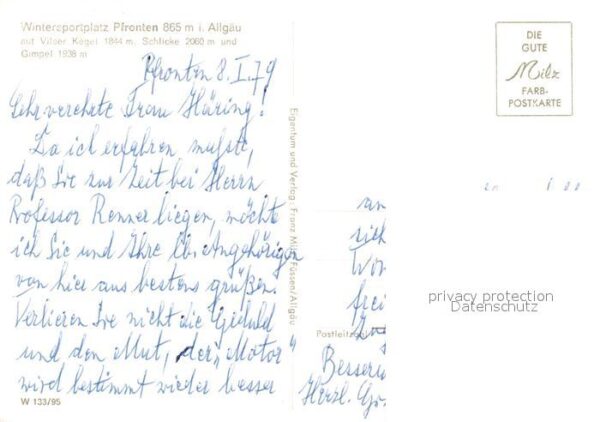 Wintersportplatz Pfronten 865 m i. Allgäu
mit Vilser Kegel 1844 m, Schlicke 2060 m und
Gimpel 1938 m
Pfronten 8.I.79
Sehr verehrte Frau Häring!
Da ich erfahren mußte,
daß Sie zur Zeit bei Herrn
Professor Renner liegen, möchte
ich Sie und Ihre lb. Angehörigen
von hier aus bestens grüßen.
Verlieren Sie nicht die Geduld
und den Mut, der „Motor"
wird bestimmt wieder besser
W 133/95
Eigentum und Verlag: Franz Milz, Füssen/Allgäu
DIE
GUTE
Milz
FARB-
POSTKARTE
an
sich
Wor
frei
Postleitzahl
Besseru
Herzl. Grü
privacy protection
Datenschutz